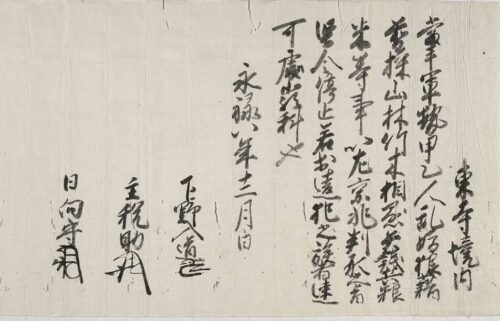 東寺境内
當軍勢甲乙人乱妨狼藉
剪採山林竹木相懸矢銭兵粮
米等事以左京兆判形旨
堅令停止若於違犯之族者速
可處嚴科也
永禄八年十二月日
下野入道
主税助
日向守